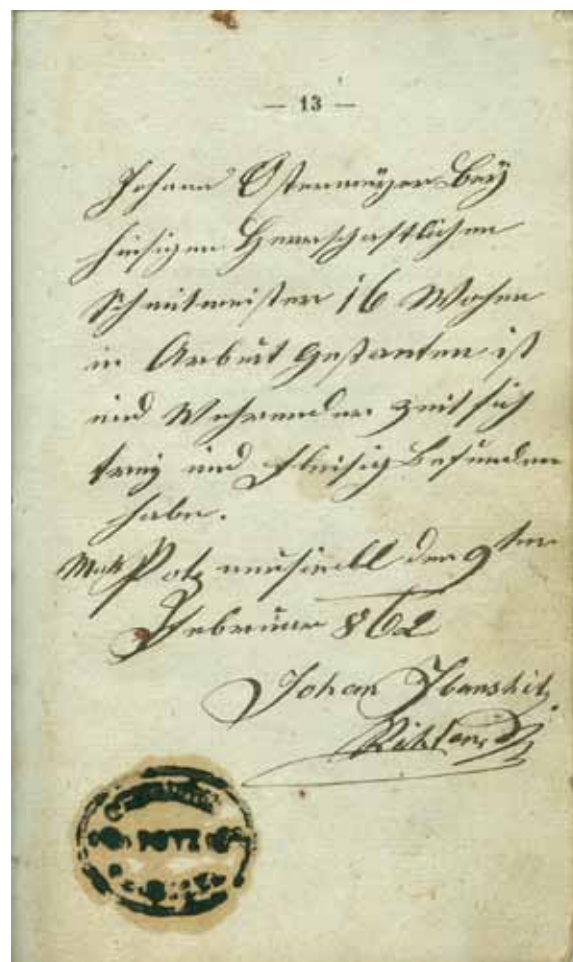 — 13 —
Johann Ostermeyer Bey
hiesigen Herrschaftlichen
Schmitmeister 16 Wochen
in Arbeit gestanten ist
und Wehrender Zeit sich
treu und fleisig befunden
habe.
Potz den 9ten
Februar 862
Johan
POTZ